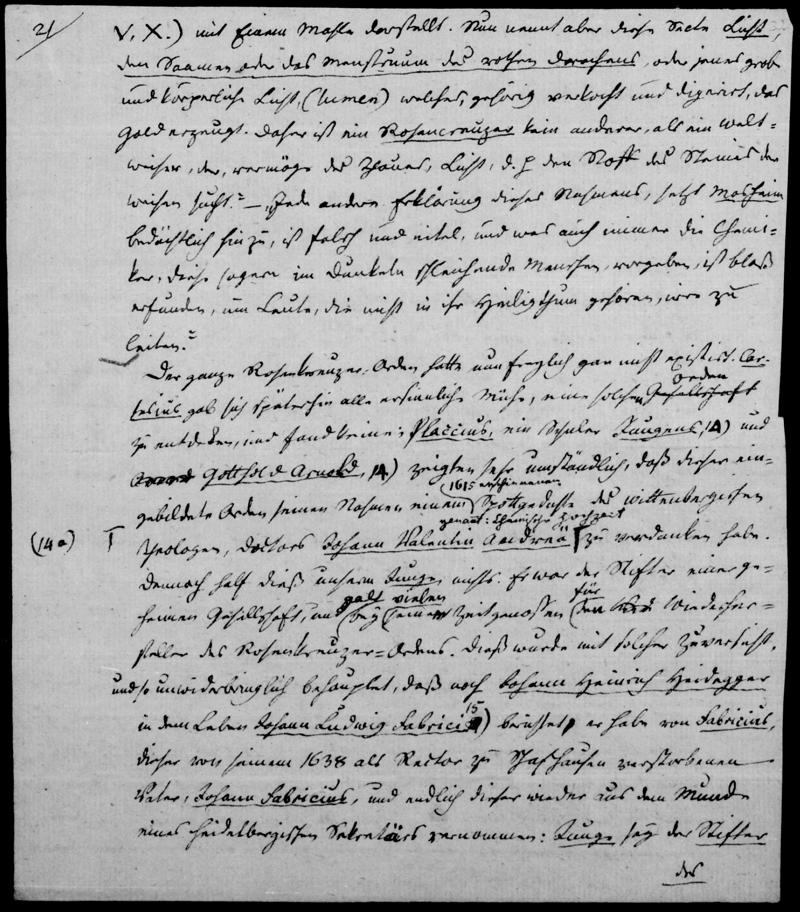 21
V. X.) mit Einem Mahle darstellt. Nun nennt aber diese Secte Licht,
den Saamen oder das Menstruum des rothen Drachens, oder jenes grobe
und körperliche Licht, (lumen) welches, gehörig verkocht und digerirt, das
Gold erzeugt. Daher ist ein Rosencreuzer kein anderer, als ein Welt=
weiser, der, vermöge des Thaues, Licht, d. h. den Stoff des Steines der
Weisen sucht." — „Jede andere Erklärung dieses Nahmens, setzt Mosheim
bedächtlich hinzu, ist falsch und eitel, und was auch immer die Chemi=
ker, diese so gern im Dunkeln schleichende Menschen, vorgeben, ist bloß
erfunden, um Leute, die nicht in ihr Heiligthum gehören, irre zu
leiten."
Der ganze Rosenkreuzer=Orden hatte nun freylich gar nicht existirt. Car=
tesius gab sich späterhin alle ersinnliche Mühe, eine solchen Gesellschaft Orden
zu entdecken, und fand keine; Placcius, ein Schüler Jungens, 14) und
Gottfold Arnold, 14) zeigten sehr umständlich, daß dieser ein=
gebildete Orden seinen Nahmen einem 1615 erschienenen Spottgedichte des wittenbergischen
genant: Chemische Hochzeit
(14a) Theologen, Doctors Johann Valentin Andreä zu verdanken habe.
Dennoch half dieß unserm Junge nichts. Er war der Stifter einer ge=
heimen Gesellschaft, und galt bey vielen seiner Zeitgenossen für den Wiederher=
steller des Rosenkreuzer=Ordens. Dieß wurde mit solcher Zuversicht,
und so unwiderbringlich behauptet, daß noch Johann Heinrich Heidegger
in dem Leben Johann Ludwig Fabricii 15) berichtet, er habe von Fabricius,
dieser von seinem 1638 als Rector zu Schafhausen verstorbenen
Vater, Johann Fabricius, und endlich dieser wieder aus dem Munde
eines heidelbergischen Sekretärs vernommen: Junge sey der Stifter
des